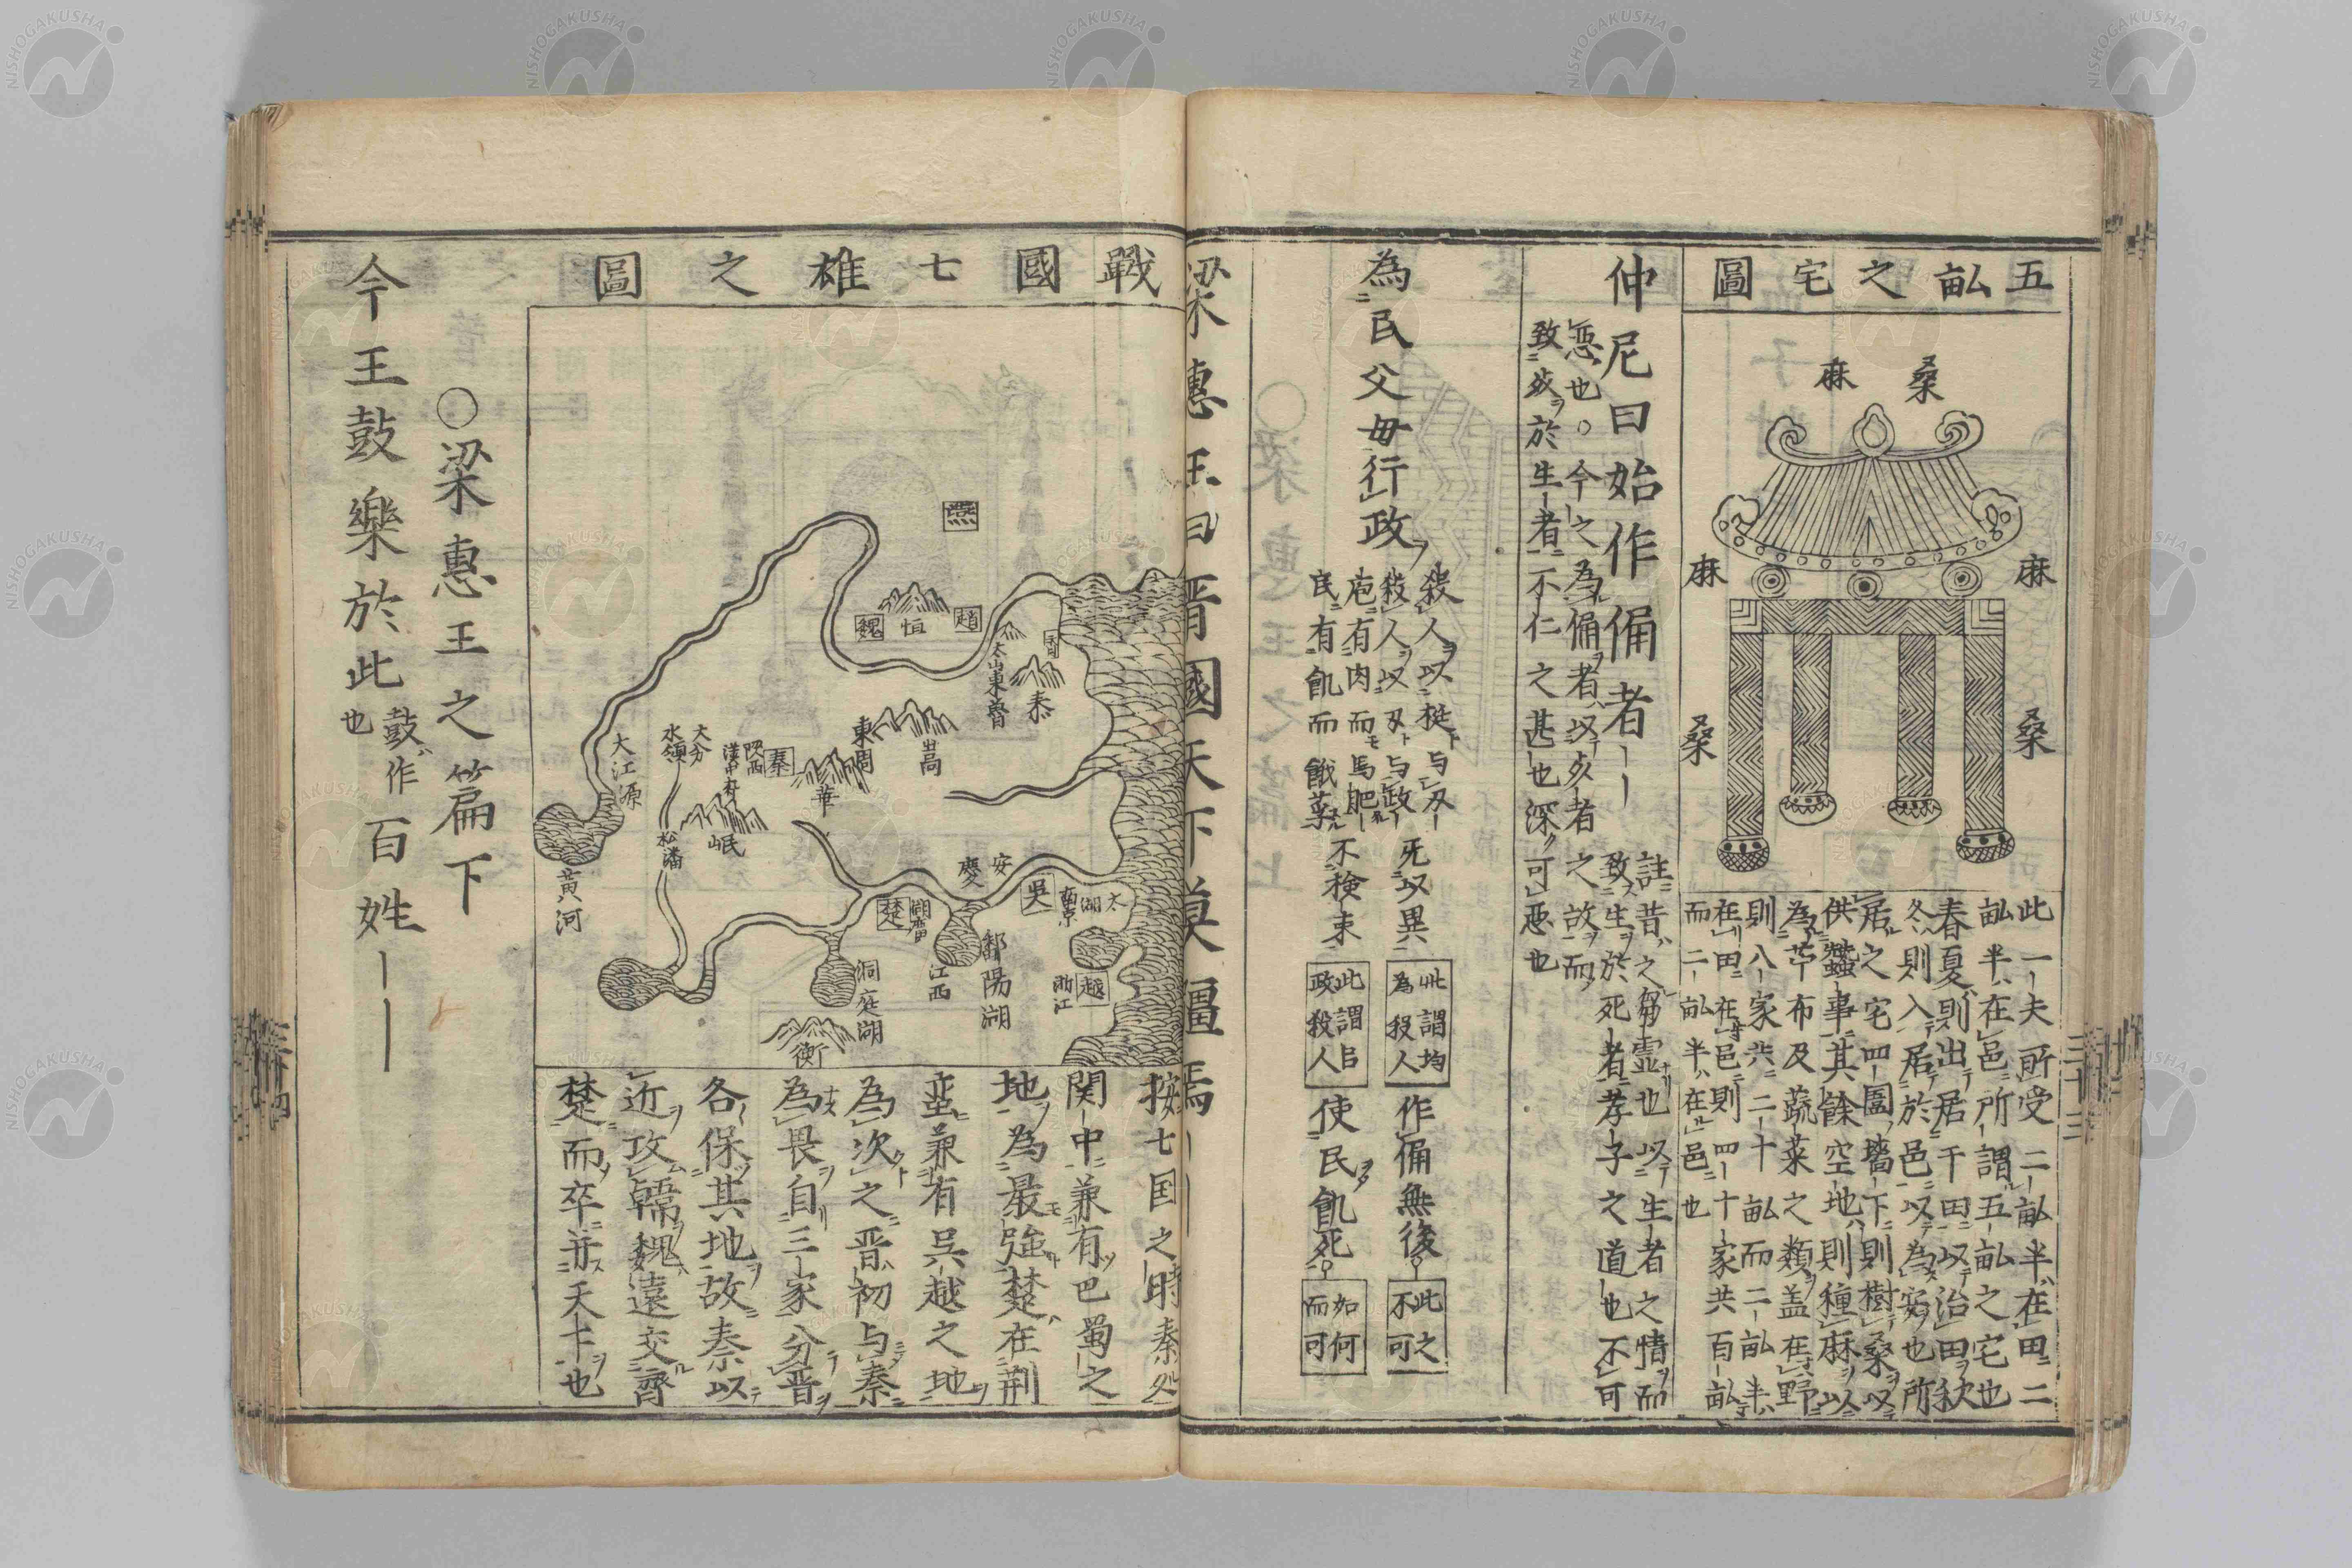 五畝之宅圖
桑
麻
麻
麻
桑
桑
此一夫所受二畝半在田二
畝半在邑所謂五畝之宅也
春夏則出居干田以治田秋
冬則入居於邑以為安也所
居之宅四圍墻下則樹桑以
供蠶事其餘空地則種麻以
為苧布及蔬菜之類盖在野
則八家共二十畝而二畝半
在田在邑則四十家共百畝
而二畝半在邑也
仲尼曰始作俑者
註昔之芻霊也以生者之情而
致生於死者孝子之道也不可
之故而
惡也○今之為俑者以
致死於生者不仁之甚也深可惡也
為民父毋行政
殺人以梃与刃
殺人以刃与政
旡以異
此謂均
為殺人
作俑無後
此之
不可
庖有肉而馬肥
民有飢而餓莩
不檢束
此謂呂
政殺人
使民飢死
如何
而可
三十三
梁惠王曰晋國天下莫彊焉
戰國七雄之圖
燕
趙
恒
魏
太山東魯
泰
嵩
東周
華
秦
陜西
漢中府
大分
水領
岷
松潘
大江源
黃河
安慶
吳
南京
太湖
越
浙江
鄱陽湖
江西
楚
洞庭湖
衡
按七国之時秦処
関中兼有巴蜀之
地為最強楚在荆
蛮兼有吳越之地
為次之晋初与秦
為畏自三家分晋
各保其地故秦以
近攻韓魏遠交齊
楚而卒并天下也
○梁惠王之篇下
今王鼓樂於此
鼓作
也
百姓
三十四
NISHOGAKUSHA